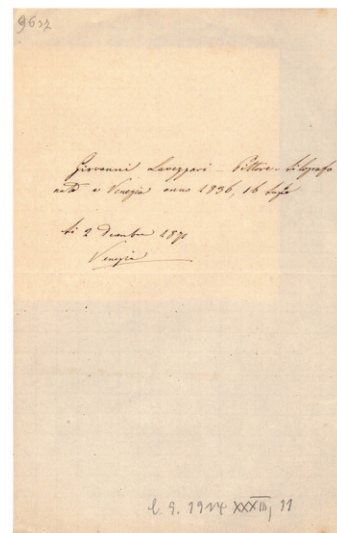 9632
Giovanni Lavezzari - Pittore - Litografo
nato a Venezia anno 1836, 16
li 2 Decembre 1871
Venezia
l. g. 1914 XXXIII, 11